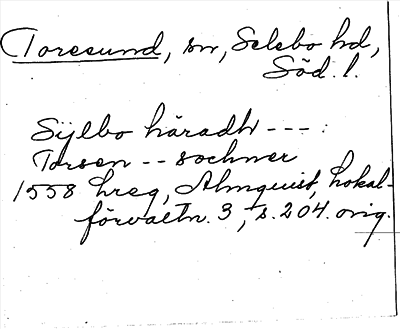 Toresund, sn, Selebo hd,
Söd. l.
Sylbo häradh ---:
Torsen -- sochner
1558 hreg, Almquist, Lokal-
förvaltn. 3, s. 204. orig.